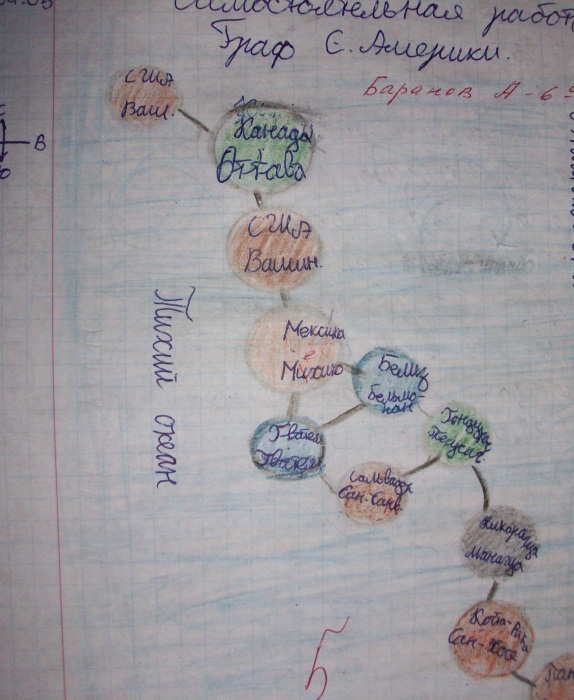 Самостоятельная работа
Граф С. Америки.
Баранов А - 6
В
США
Ваш.
Канада
Оттава
США
Вашин.
Мексика
Мехико
Белиз
Бельмо-
пан
Тихий океан
Гватем
Сальвадор
Сан-Саль
Никорагуа
Манагуа
Коста-Рика
Сан-Хосе
Пан
5